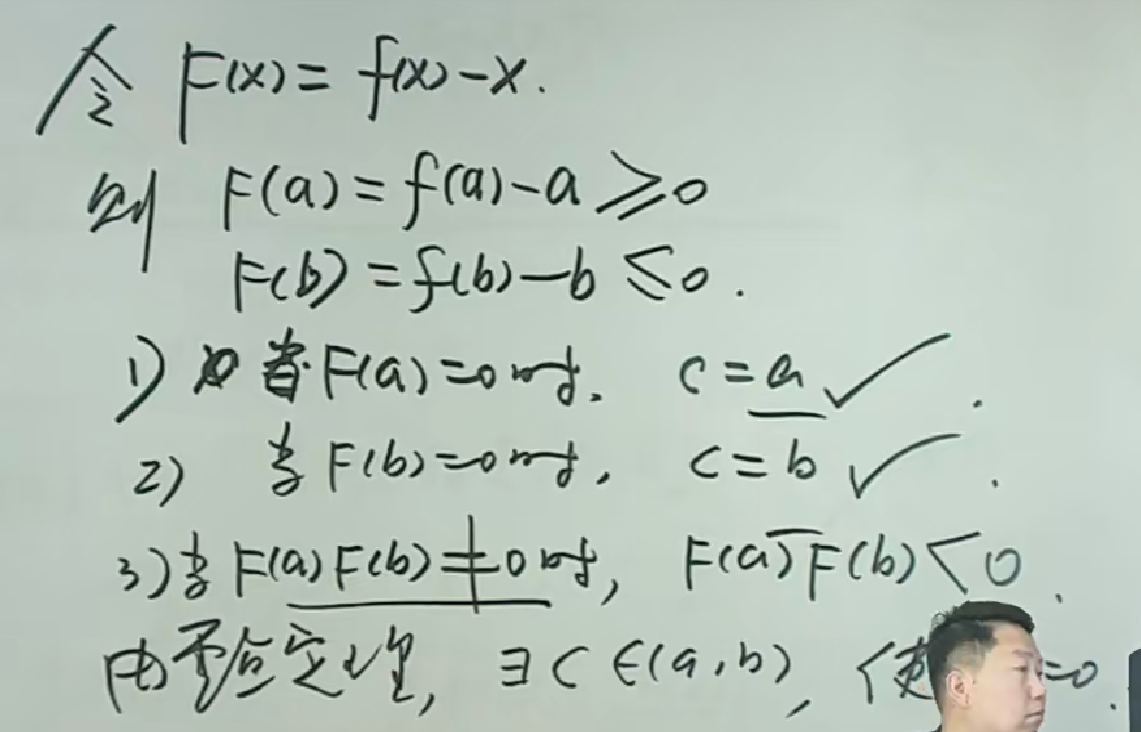 令 F(x) = f(x) - x.
则 F(a) = f(a) - a ≥ 0
F(b) = f(b) - b ≤ 0.
1) 当 F(a) = 0 时, c = a ✓.
2) 当 F(b) = 0 时, c = b ✓.
3) 当 F(a) F(b) ≠ 0 时, F(a) F(b) < 0.
由零点定理, ∃ c ∈ (a, b), 使 = 0.